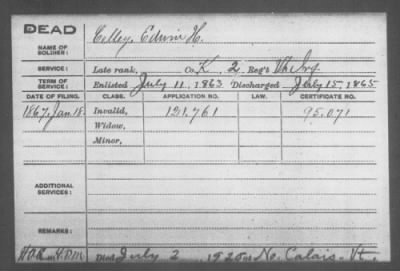 DEAD
NAME OF SOLDIER: Celley, Edwin H.
SERVICE: Late rank, Co. K, 2 Reg't Vt. Inf.
TERM OF SERVICE: Enlisted July 11, 1863 Discharged July 15, 1865
DATE OF FILING. CLASS. APPLICATION NO. LAW. CERTIFICATE NO.
1867, Jan 18. Invalid, 121.761 95.071
Widow,
Minor,
ADDITIONAL SERVICES:
REMARKS:
Died July 2, 1925 at No. Calais, Vt.